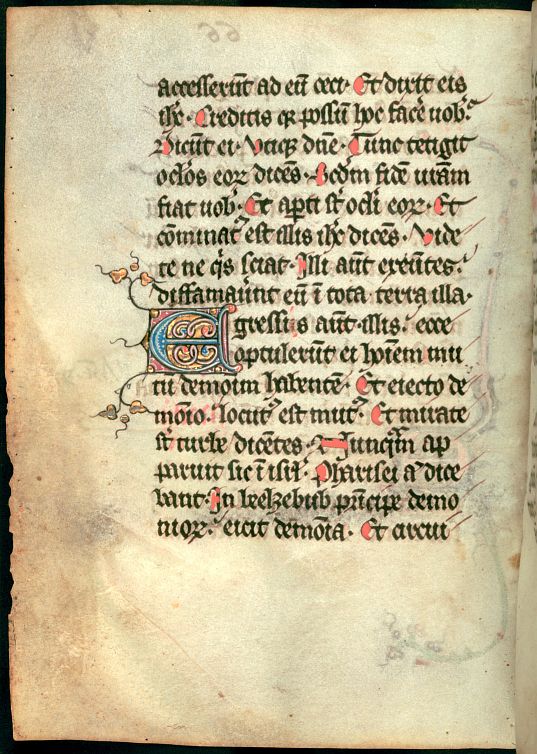 accesserūt ad eū ceci · Et dixit eis
ihc̄ · Creditis qꝛ possū hoc facē uob̄ ·
Dicūt ei · Vtiqꝫ dn̄e · Tunc tetigit
oc̄los eoꝝ dicēs · Scd̄m fidē ur̄am
fiat uob̄ · Et aꝑti st̄ oc̄li eoꝝ · Et
cōminatꝰ est illis ihc̄ dicēs · Vide
te ne q̄s sciat · Illi aūt exeuntes ·
diffamauer̄t eū ī tota terra illa ·
Egressis aūt illis · ecce
optulerūt ei hoīem mu
tū demoīm habentē · Et eiecto de
mōio · locutꝰ est mutꝰ · Et mirate
st̄ turbe dicētes · Nunq̄m ap
paruit sic ī isrl̄ · Pharisei aūt dice
bant · In beelzebub prīncipe demo
nioꝝ · eicit demōīa · Et circui